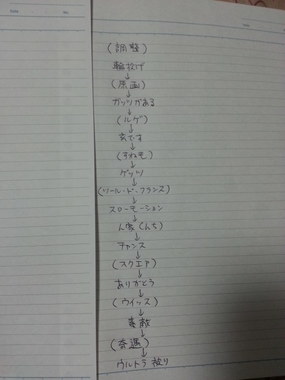 (調整)
輪投げ
↓
(原画)
↓
ガッツがある
↓
(ルゲ)
↓
炎です
↓
↓
ゲッツ
↓
(ツール・ド・フランス)
↓
スローモーション
↓
↓
チャンス
↓
(スクエア)
↓
ありがとう
↓
(ウイッス)
↓
素敵
↓
↓
ウルトラ被り